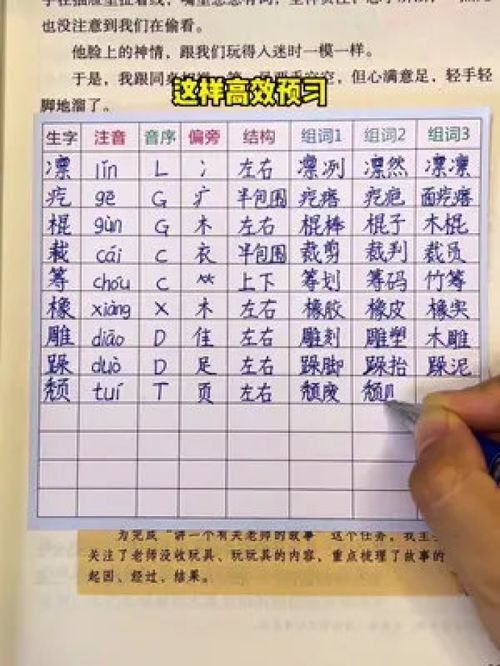 也没注意到我们在偷看。
他脸上的神情，跟我们玩得入迷时一模一样。
于是，我跟同桌 但心满意足，轻手轻
这样高效预习
脚地溜了。
生字 注音 音序 偏旁 结构 组词1 组词2 组词3
凛 lǐn L 冫 左右 凛冽 凛然 凛凛
疙 gē G 疒 半包围 疙瘩 疙疤 面疙瘩
棍 gùn G 木 左右 棍棒 棍子 木棍
裁 cái C 衣 半包围 裁剪 裁判 裁员
筹 chóu C ⺮ 上下 筹划 筹码 竹筹
橡 xiàng X 木 左右 橡胶 橡皮 橡实
雕 diāo D 隹 左右 雕刻 雕塑 木雕
跺 duò D 足 左右 跺脚 跺抬 跺泥
颓 tuí T 页 左右 颓废 颓
为完成“讲一个有关老师的故事”这个任务，我主
关注了老师没收玩具、玩玩具的内容，重点梳理了故事的
起因、经过、结果。